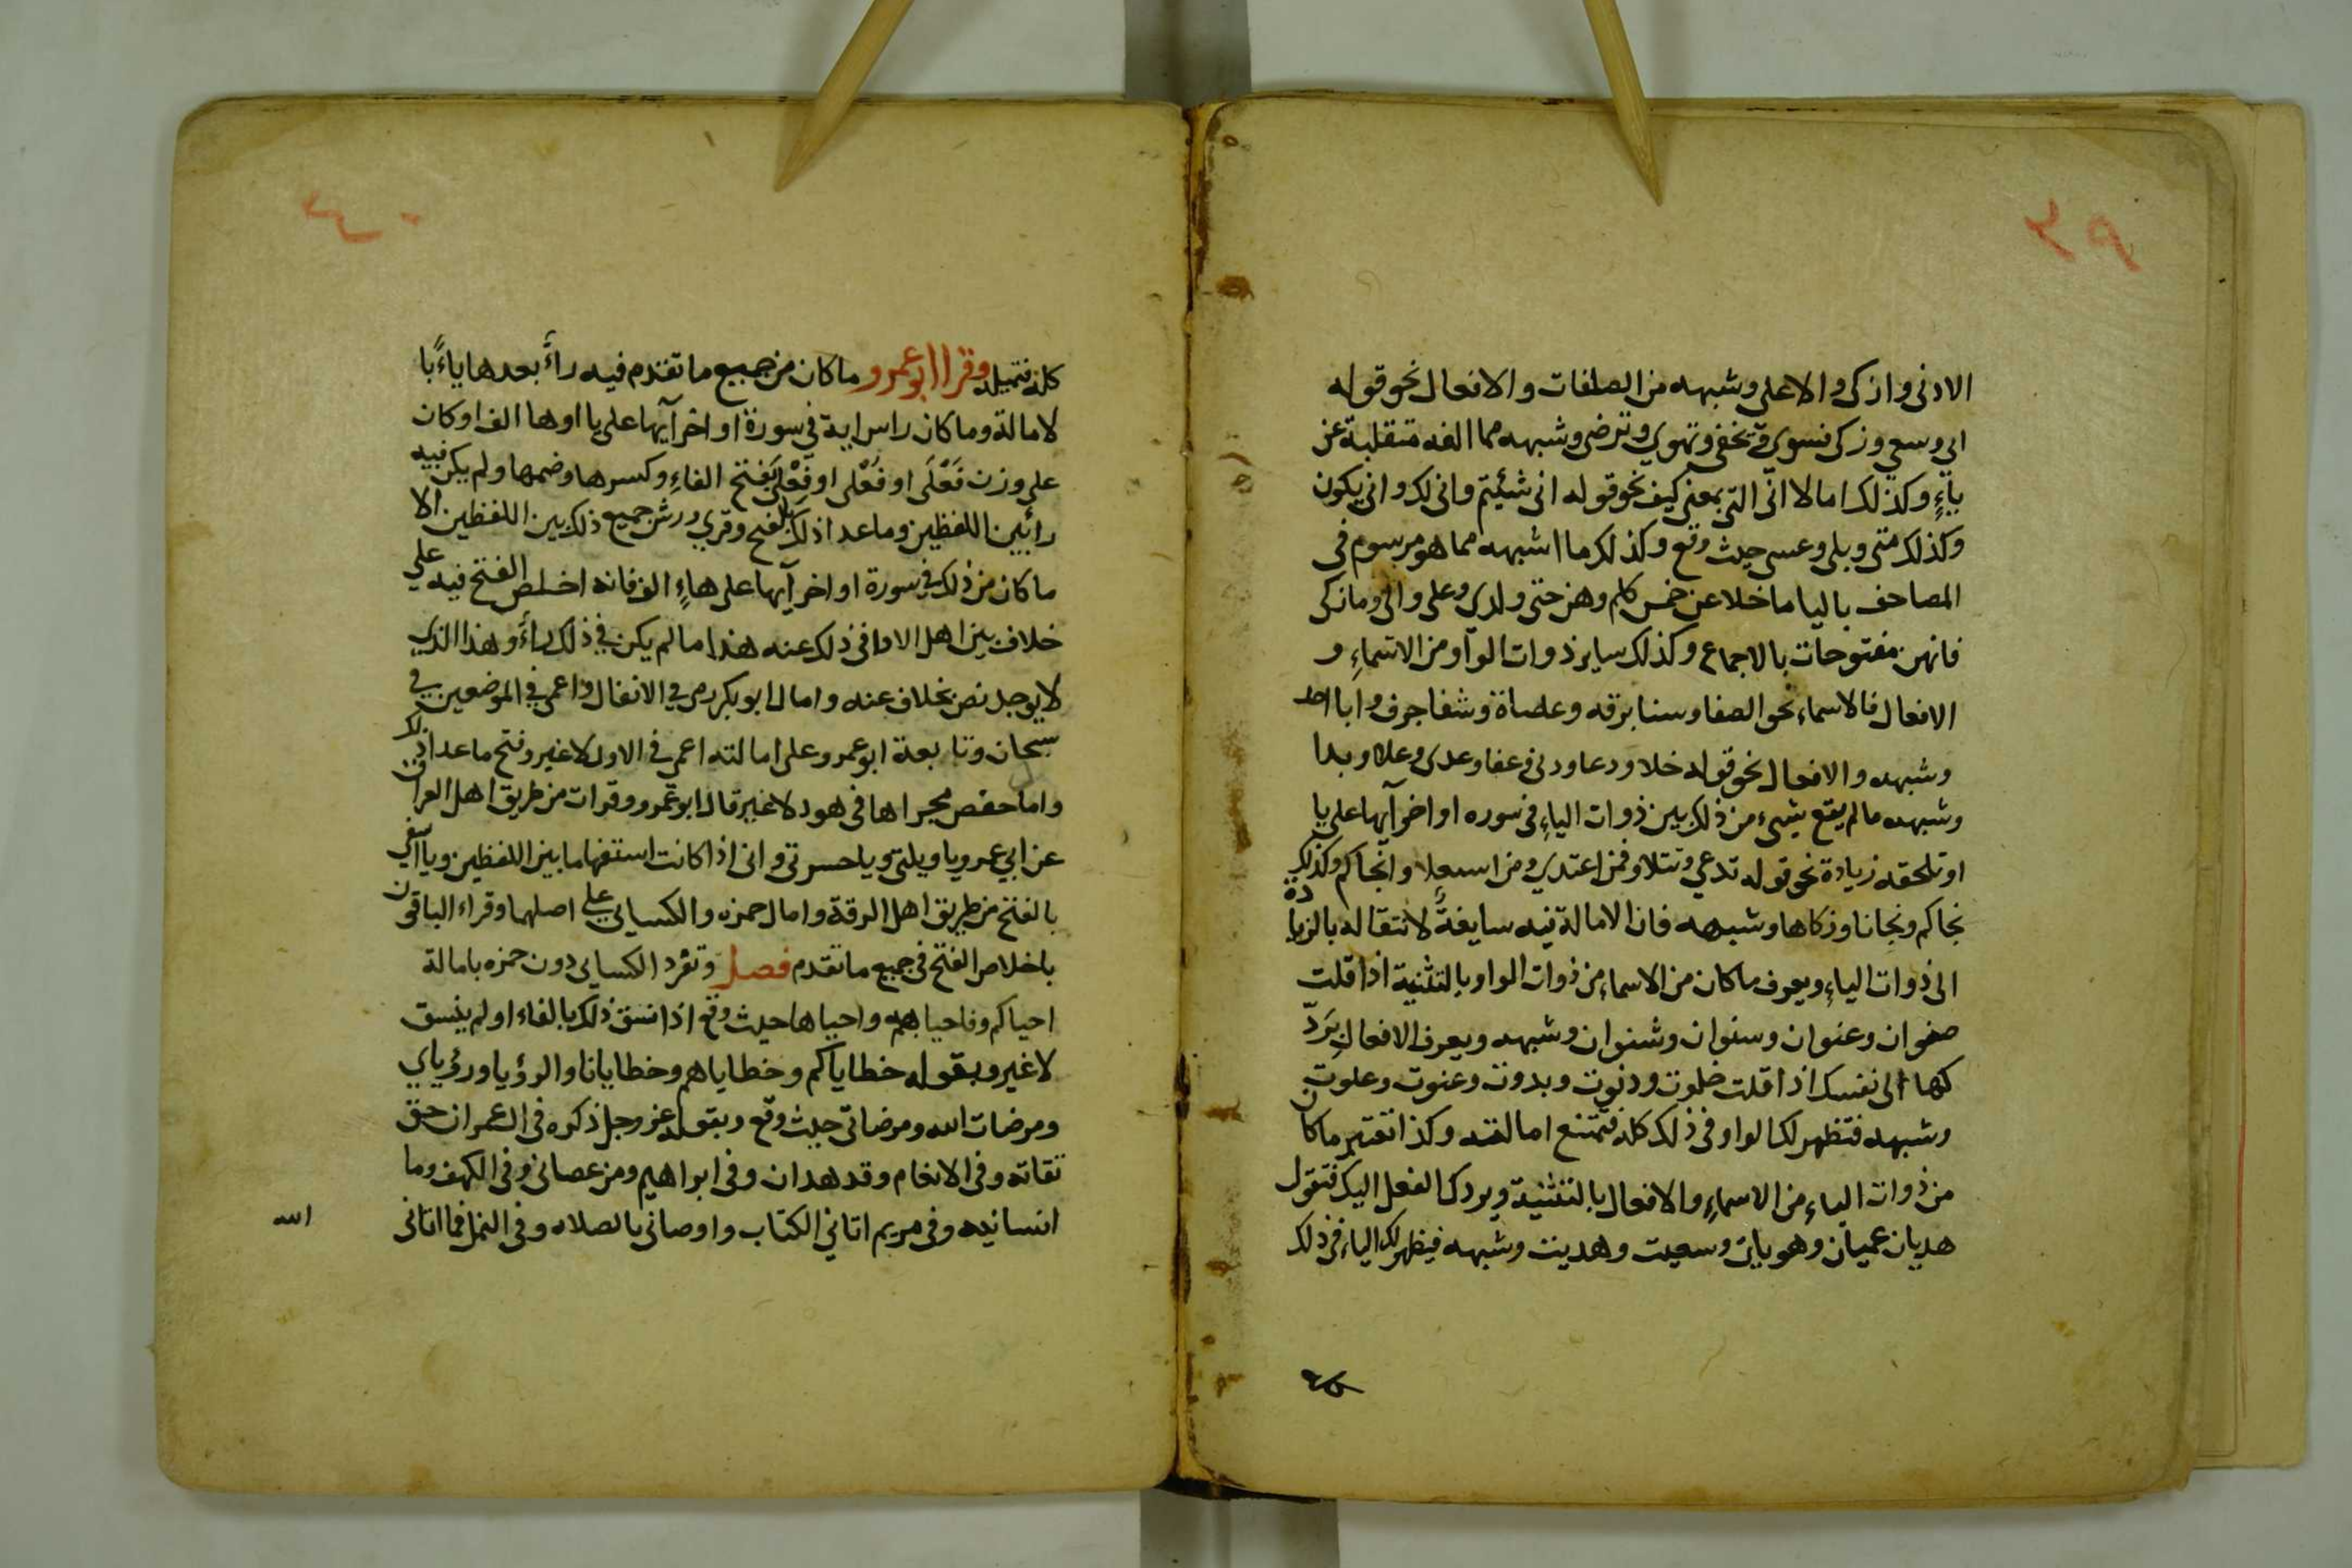 الادنى وازكى والاعلى وشبهه من الصفات والافعال نحو قوله
ابى وسعى وزكى فسوى وتخفى وتهوى وترضى وشبهه مما الفه منقلبة عن
ياءٍ وكذلك امالا انّى التى بمعنى كيف نحو قوله انى شئتم وانى لك وانى يكون
وكذلك متى وبلى وعسى حيث وقع وكذلك ما اشبهه مما هو مرسوم فى
المصاحف باليا ما خلا عن خمس كلم وهن حتى ولدى وعلى والى وما زكى
فانهن مفتوحات بالاجماع وكذلك ساير ذوات الواو من الاسماءِ و
الافعال فالاسماء نحو الصفا وسنا برقه وعصاة وشفا جرف وابا احد
وشبهه والافعال نحو قوله خلا ودعا ودنى وعفا وعدى وعلا وبدا
وشبهه ما لم يقع شيىء من ذلك بين ذوات الياءِ فى سوره اواخر آيها على يا
او تلحقه زيادة نحو قوله تدعى وتتلا وفمن اعتدى ومن استعلا وانجاكم وكذلك
نجاكم ونجانا وزكاها وشبهه فان الامالة فيه سايغةً لانتقاله بالزيادة
الى ذوات الياءِ ويعرف ما كان من الاسماء من ذوات الواو بالتثنية اذا قلت
صفوان وعنوان وسنوان وشنوان وشبهه ويعرف الافعال بِرَدّ
كها الى نفسك اذا قلت خلوت ودنوت وبدوت وعنوت وعلوت
وشبهه فتظهر لك الواو فى ذلك كله فتمتنع امالته وكذا تعتبر ما كان
من ذوات الياءِ من الاسماءِ والافعال بالتثنية ويردك الفعل اليك فتقول
هديان عميان وهويان وسعيت وهديت وشبهه فيظهر لك الياء فى ذلك
كله فتميله وقرا ابو عمرو ما كان من جميع ما تقدم فيه راءً بعدها ياءً با
لامالة وما كان راس اية فى سورة اواخر آيها على يا اوها الف او كان
على وزن فَعْلَى او فُعْلى او فِعْلى بفتح الفاءِ وكسرها وضمها ولم يكن فيه
را بين اللفظين وما عدا ذلك بالفتح وقرى ورش جميع ذلك بين اللفظين الا
ما كان من ذلك فى سورة اواخر آيها على هاءٍ الف فانه اخلص الفتح فيه على
خلاف بين اهل الادا فى ذلك عنه هذا ما لم يكن فى ذلك راءً وهذا الذى
لا يوجد نص بخلاف عنه وامال ابو بكر رمى فى الانفال واعمى فى الموضعين فى
سبحان وتابعة ابو عمرو على امالته اعمى فى الاول لا غير وفتح ما عدا ذلك
وامال حفص مجراها فى هود لا غير قال ابو عمرو وقرات من طريق اهل العراق
عن ابى عمرو يا ويلتى ويا حسرتى وانى اذا كانت استفهاما بين اللفظين ويا اسفى
بالفتح من طريق اهل الرقة وامال حمزه والكسايى على اصلهما وقراء الباقون
باخلاص الفتح فى جميع ما تقدم فصل وتفرد الكسايى دون حمزه بامالة
احياكم وفاحيا بهم واحياها حيث وقع اذا نسق ذلك بالفاء او لم ينسق
لا غير وبقوله خطاياكم وخطاياهم وخطايانا والرؤيا ورؤياى
ومرضات الله ومرضاتى حيث وقع وبقوله عز وجل ذكره فى ال عمران حق
تقاته وفى الانعام وقد هدان وفى ابراهيم ومن عصانى وفى الكهف وما
انسانيه وفى مريم اتانى الكتاب واوصانى بالصلاه وفى النمل فما اتانى
الله